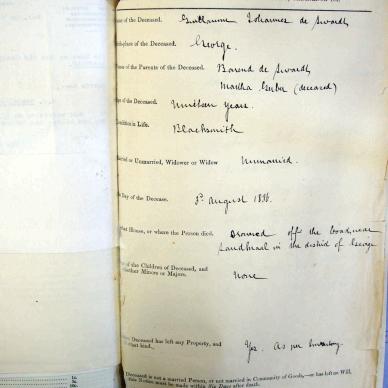 Name of the Deceased. Guillaum Johannes de Swardt
Birthplace of the Deceased. George.
Names of the Parents of the Deceased. Barend de Swardt
Martha (deceased)
Age of the Deceased. Nineteen Years.
Condition in Life. Blacksmith
Married or Unmarried, Widower or Widow Unmarried.
The Day of the Decease. 3d August 1896.
at House, or where the Person died. Drowned off the near
in the district of George
of the Children of Deceased, and
whether Minors or Majors. None
Deceased has left any Property, and
what kind. Yes. As per Inventory.
Deceased is not a married Person, or not married in Community of Goods,—or has left no Will,
this Notice must be made within Six Days after death.